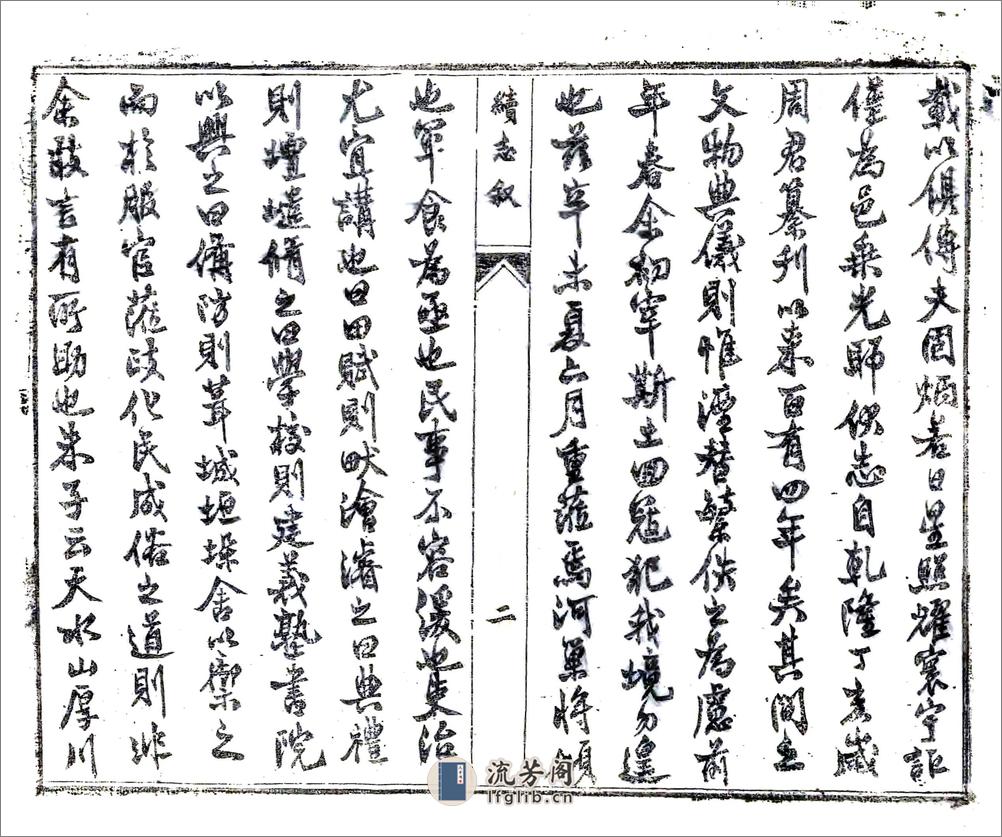 載以俱傳夫固炳若日星照耀寰宇詎
僅為邑乘光郿伏志自乾隆丁亥歲
周君纂刊以來百有四年矣其間之
文物典儀則惟湮替繁佚之為慮前
年春余初宰斯土回寇犯我境勿遑
也茲辛未夏六月重蒞焉河軍將領
續志叙
二
也軍食為亟也民事不容緩也吏治
尤宜講也曰田賦則畎澮濬之曰典禮
則壇壝脩之曰學校則建義塾書院
以興之曰備防則葺城垣垛舍以禦之
而於服官蒞政化民成俗之道則非
余敢言有所助也朱子云天水山厚川
流芳阁
lfglib.cn